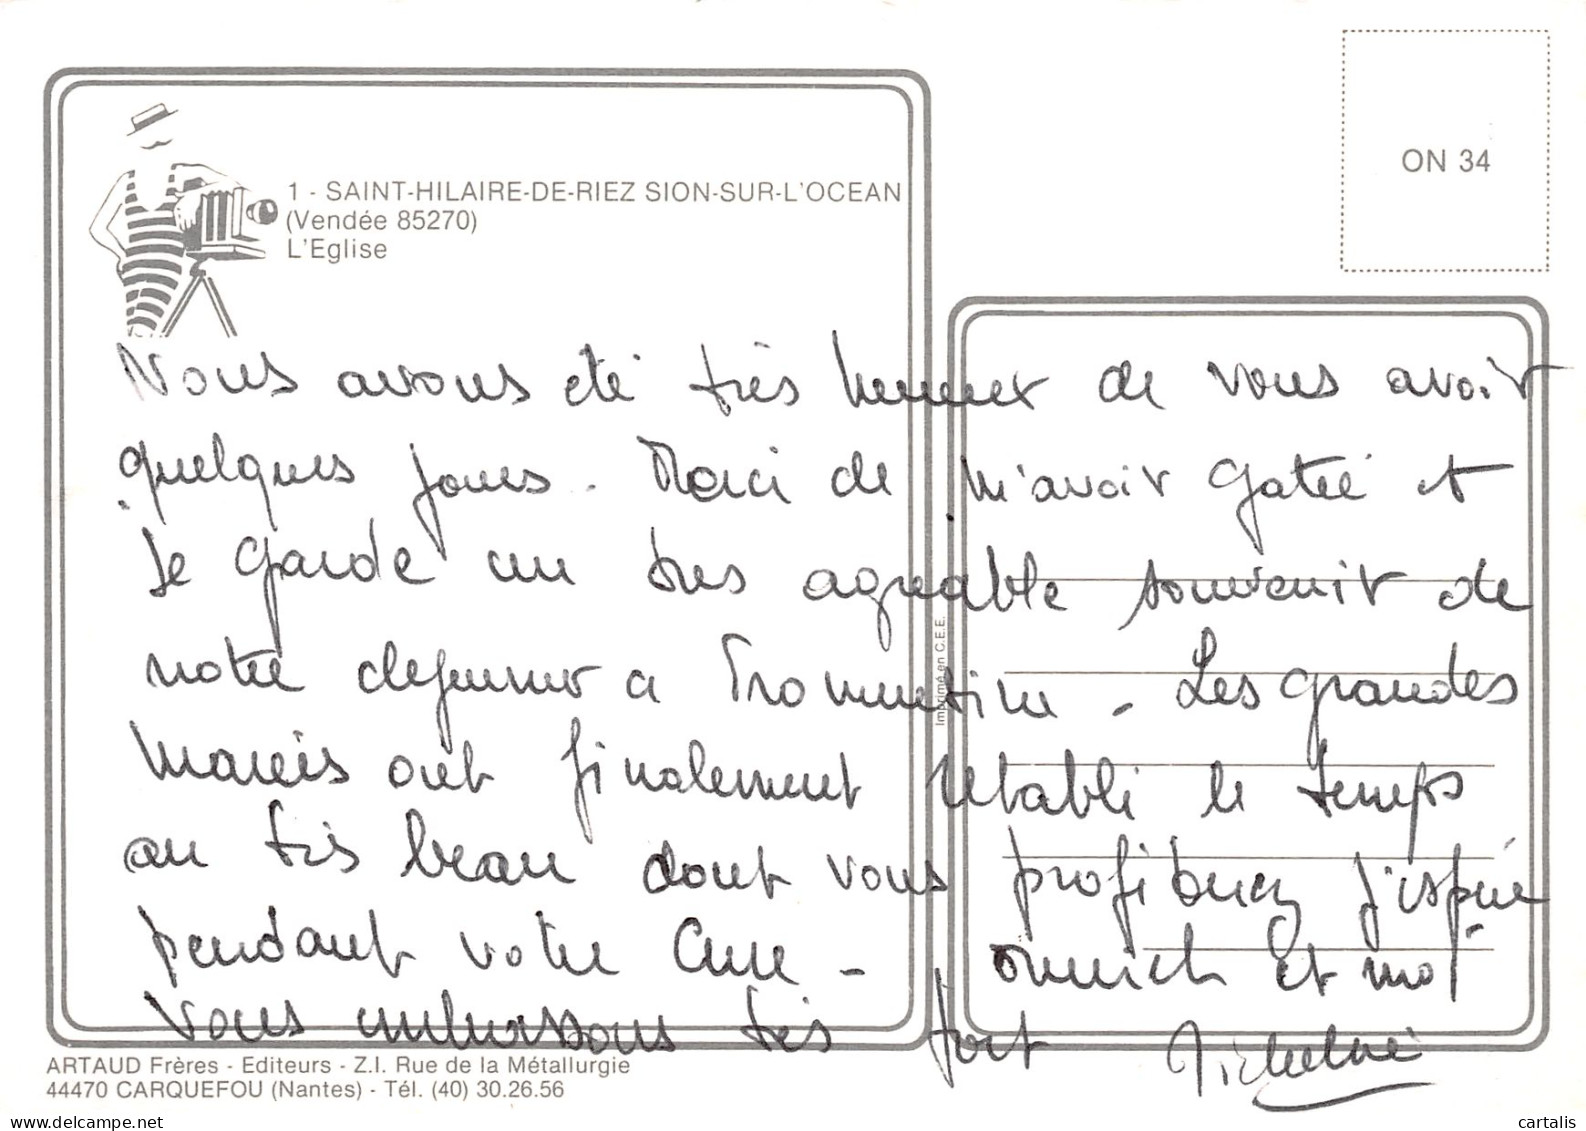 ON 34
1 - SAINT-HILAIRE-DE-RIEZ SION-SUR-L'OCEAN
(Vendée 85270)
L'Eglise
Nous avons été très heureux de vous avoir
quelques jours. Merci de m'avoir gatée et
je garde un tres agreable souvenir de
notre dejeuner a Fromentine - Les grandes
Marées ont finalement retabli le temps
au très beau dont vous profiterez j'espère
pendant votre Cure - et moi
Vous embrassons très fort
Imprimé en C.E.E.
ARTAUD Frères - Editeurs - Z.I. Rue de la Métallurgie
44470 CARQUEFOU (Nantes) - Tél. (40) 30.26.56
www.delcampe.net
cartalis